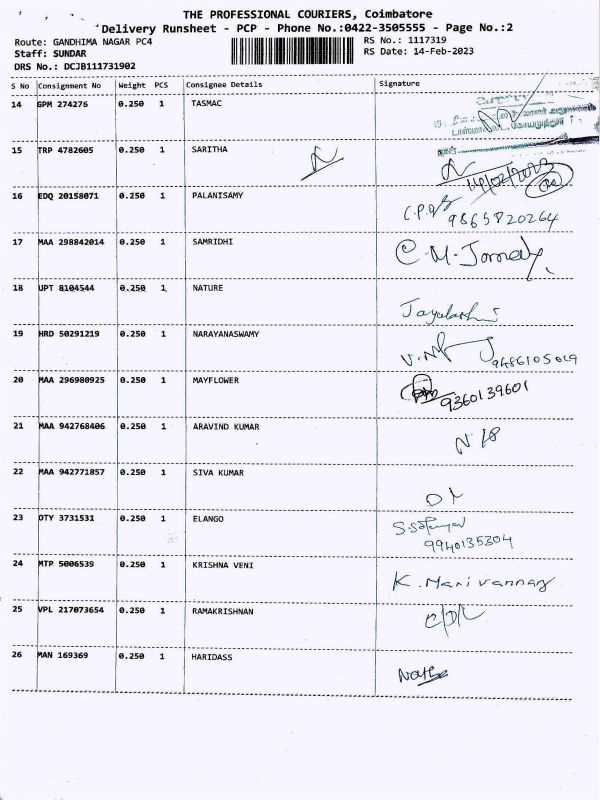 THE PROFESSIONAL COURIERS, Coimbatore
Delivery Runsheet - PCP - Phone No.:0422-3505555 - Page No.:2
Route: GANDHIMA NAGAR PC4
Staff: SUNDAR
DRS No.: DCJB111731902
RS No.: 1117319
RS Date: 14-Feb-2023
S No Consignment No Weight PCS Consignee Details Signature
14 GPM 274276 0.250 1 TASMAC
15 TRP 4782605 0.250 1 SARITHA
14/02/2023
16 EDQ 20158071 0.250 1 PALANISAMY
9865820264
17 MAA 298842014 0.250 1 SAMRIDHI
C.M.
18 UPT 8104544 0.250 1 NATURE
19 HRD 50291219 0.250 1 NARAYANASWAMY
9486105019
20 MAA 296980925 0.250 1 MAYFLOWER
9360139601
21 MAA 942768406 0.250 1 ARAVIND KUMAR
22 MAA 942771857 0.250 1 SIVA KUMAR
23 OTY 3731531 0.250 1 ELANGO
9940135304
24 MTP 5006539 0.250 1 KRISHNA VENI
K. Marivannan
25 VPL 217073654 0.250 1 RAMAKRISHNAN
26 MAN 169369 0.250 1 HARIDASS